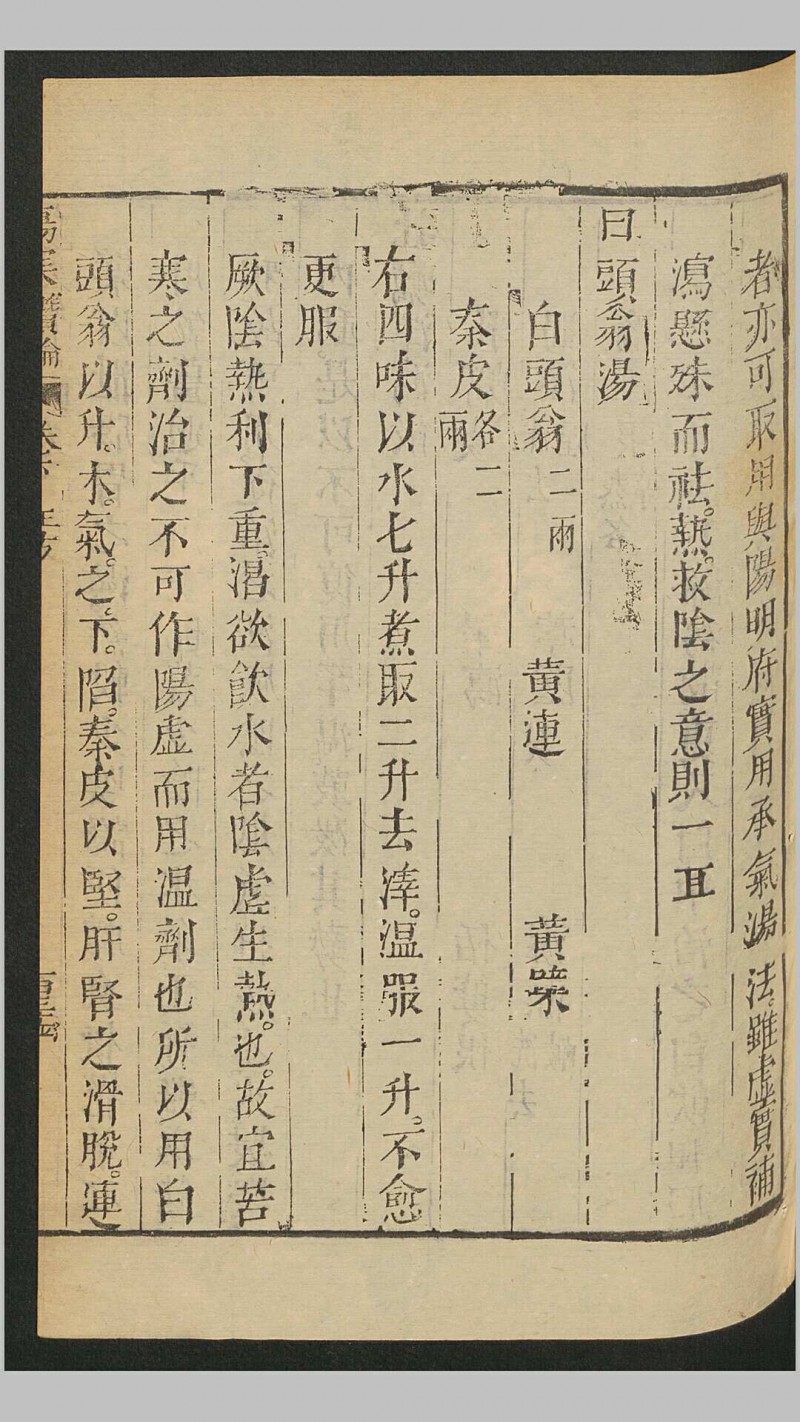 者亦可取用與陽明府實用承氣湯法。雖虛實補
瀉懸殊而祛。熱。救陰之意則一耳
白頭翁湯
白頭翁二兩　黃連　黃檗
秦皮各二兩
右四味以水七升煮取二升去滓。溫服一升。不愈
更服
厥陰熱利下重。渴欲飲水者陰虛生熱。也。故宜苦
寒之劑治之不可作陽虛而用溫劑也所以用白
頭翁以升。木。氣。之。下。陷。秦皮以堅。肝腎之滑脫。連
傷寒讚論 卷下 正方